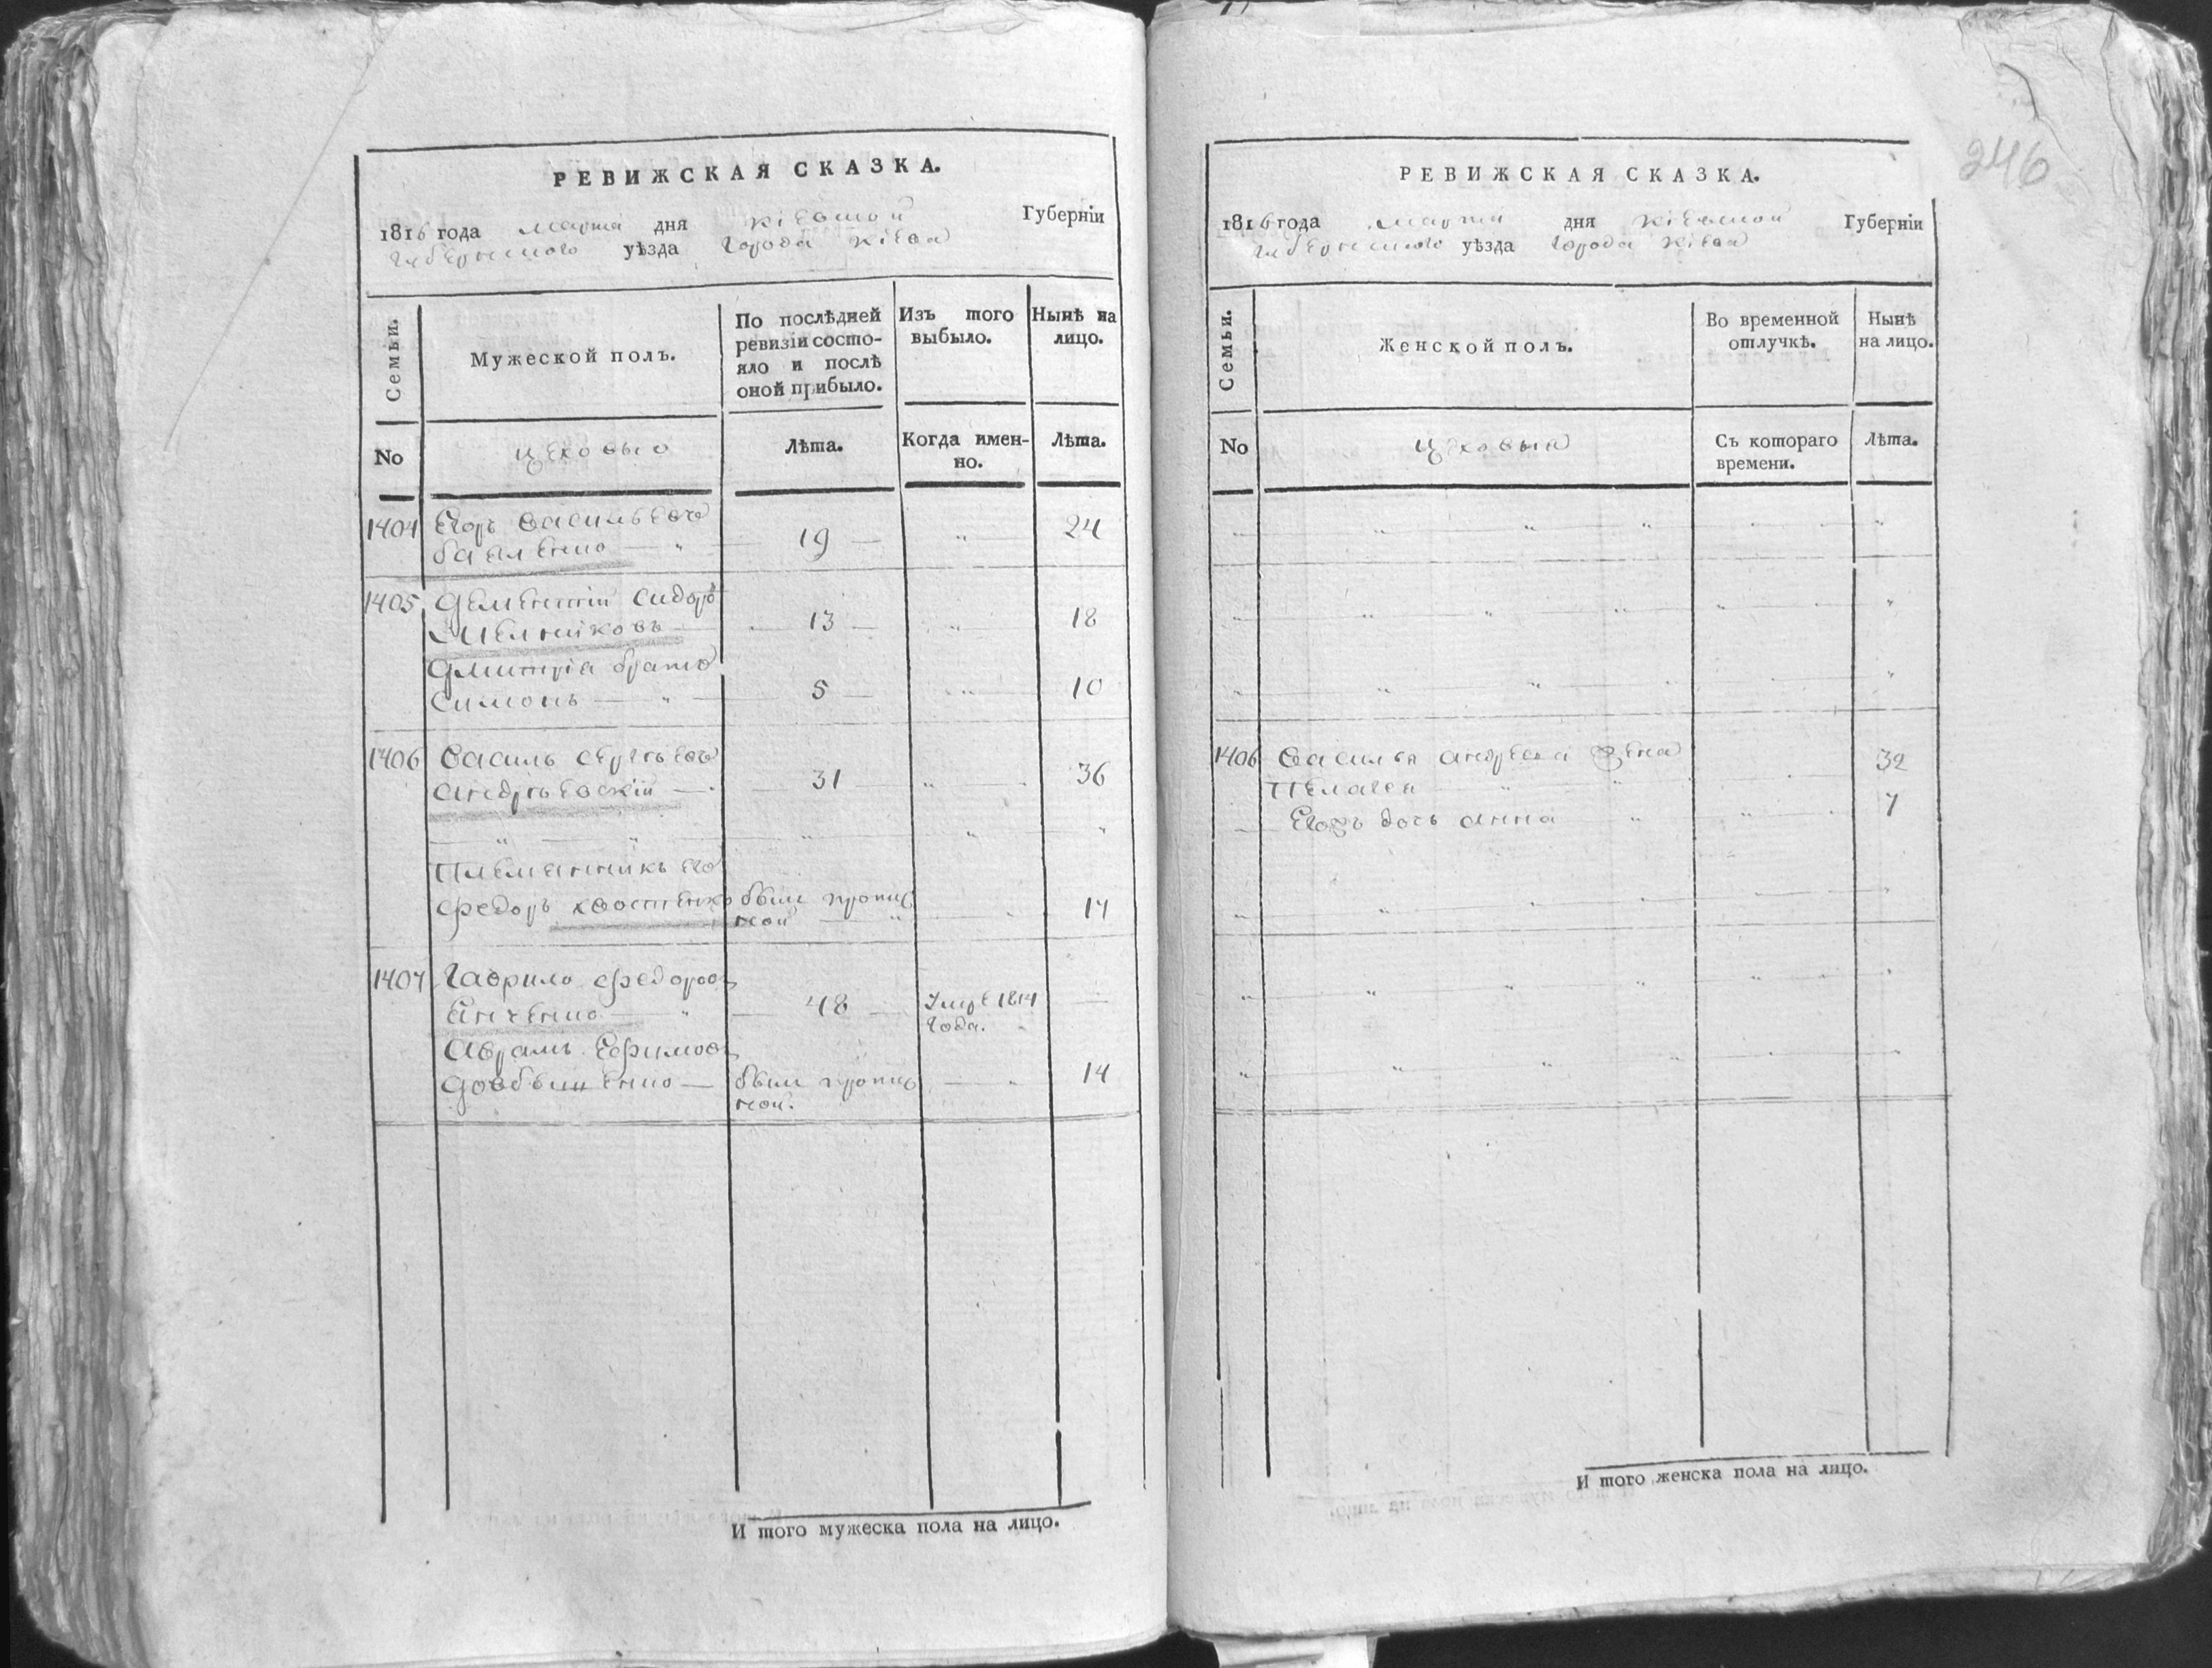 РЕВИЖСКАЯ СКАЗКА.
1816 года марта дня Кіевской Губерніи
Губернскаго уѣзда Города Кіева
Семьи.
Мужеской полъ.
По послѣдней ревизіи состо-
яло и послѣ
оной прибыло.
Изъ того
выбыло.
Нынѣ на
лицо.
No
цеховые
Лѣта.
Когда имен-
но.
Лѣта.
1404 Егоръ Васильевъ
19 " 24
1405 Дементій Сидоровъ
Мельниковъ 13 " 18
Дмитрія братъ
Симонъ " 5 " 10
1406 Василь Сергѣевъ
Андрѣевскій 31 " 36
" " " " "
Племянникъ его
Федоръ Хвостенко были пропис
ной " " 17
1407 Гаврило Федоров
Енченко " 48 Умре 1814
года.
Аврамъ Ефимов
Довбышенко были пропис " 14
ной.
И того мужеска пола на лицо.
246
РЕВИЖСКАЯ СКАЗКА.
1816 года марта дня Кіевской Губерніи
Губернскаго уѣзда Города Кіева
Семьи.
Женской полъ.
Во временной
отлучкѣ.
Нынѣ
на лицо.
No
цеховыя
Съ котораго
времени.
Лѣта.
1406 Василья Андреева жена
Пелагея " 32
Егожъ дочь Анна " " 7
И того женска пола на лицо.